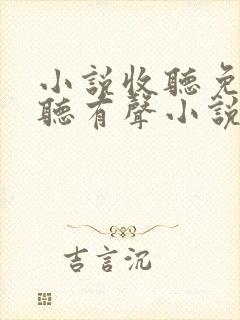 小説收聽免
聽有聲小說
吉言沉